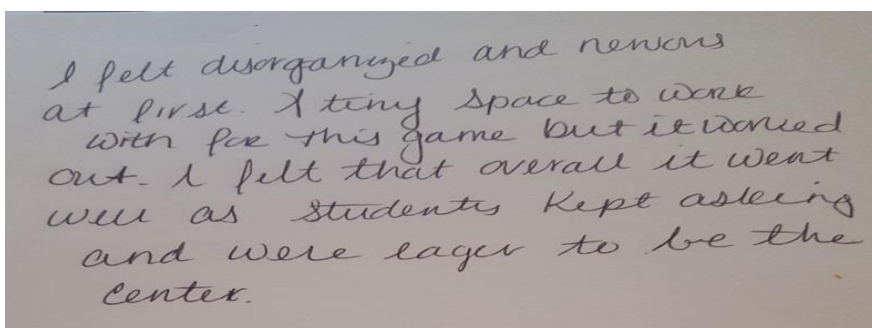 I felt disorganized and nervous
at first. A tiny space to work
with for this game but it worked
out. I felt that overall it went
well as students kept asking
and were eager to be the
center.